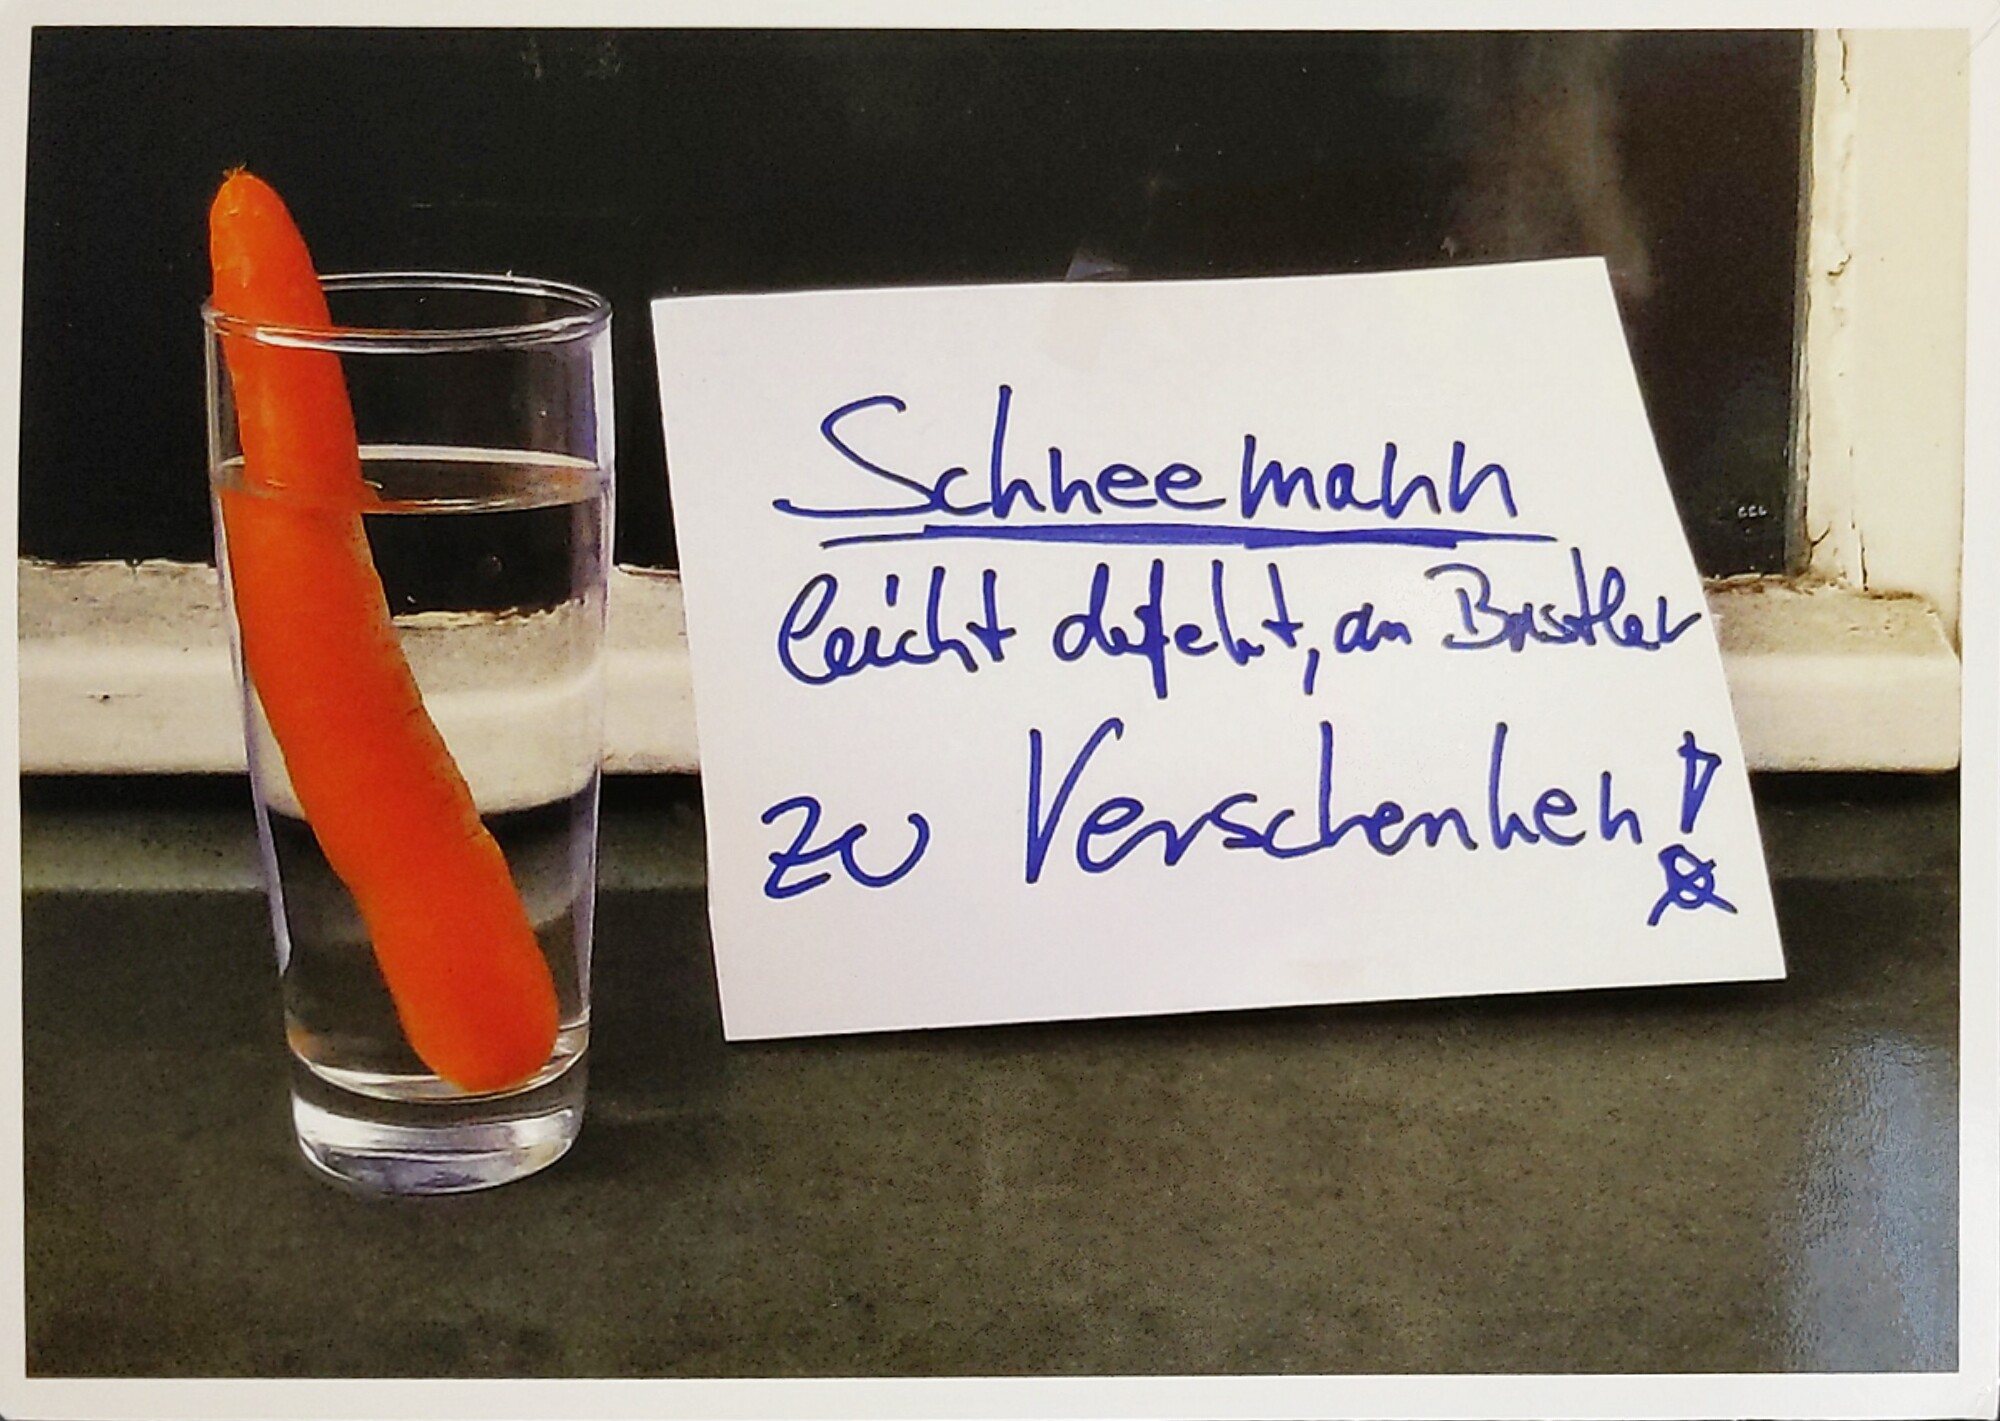 Schneemann
leicht defekt, an Bastler
zu Verschenken!